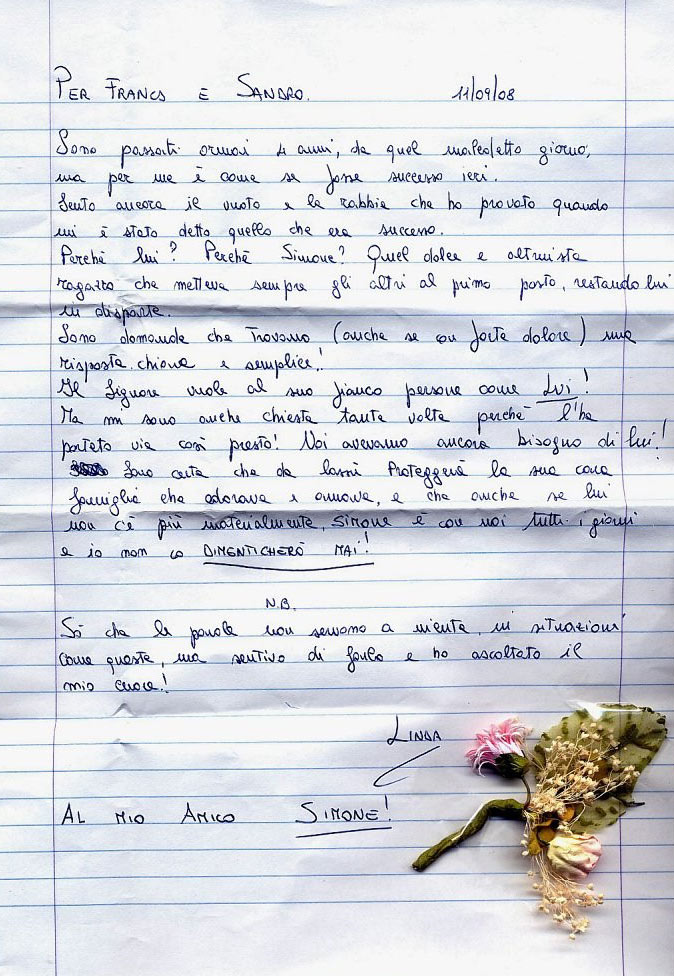 PER FRANCA E SANDRO. 11/09/08
Sono passati ormai 4 anni, da quel maledetto giorno,
ma per me è come se fosse successo ieri.
Sento ancora il vuoto e la rabbia che ho provato quando
mi è stato detto quello che era successo.
Perchè lui? Perchè Simone? Quel dolce e altruista
ragazzo che metteva sempre gli altri al primo posto, restando lui
in disparte.
Sono domande che trovano (anche se con forte dolore) una
risposta chiara e semplice!
Il Signore vuole al suo fianco persone come LUI!
Ma mi sono anche chiesta tante volte perchè l'ha
portato via così presto! Noi avevamo ancora bisogno di lui!
Sono certa che da lassù Proteggerà la sua cara
famiglia che adorava e amava, e che anche se lui
non c'è più materialmente, SIMONE è con noi tutti i giorni
e io non lo DIMENTICHERÒ MAI!
N.B.
Sò che le parole non servono a niente, in situazioni
come queste, ma sentivo di farlo e ho ascoltato il
mio cuore!
LINDA
AL MIO AMICO SIMONE!